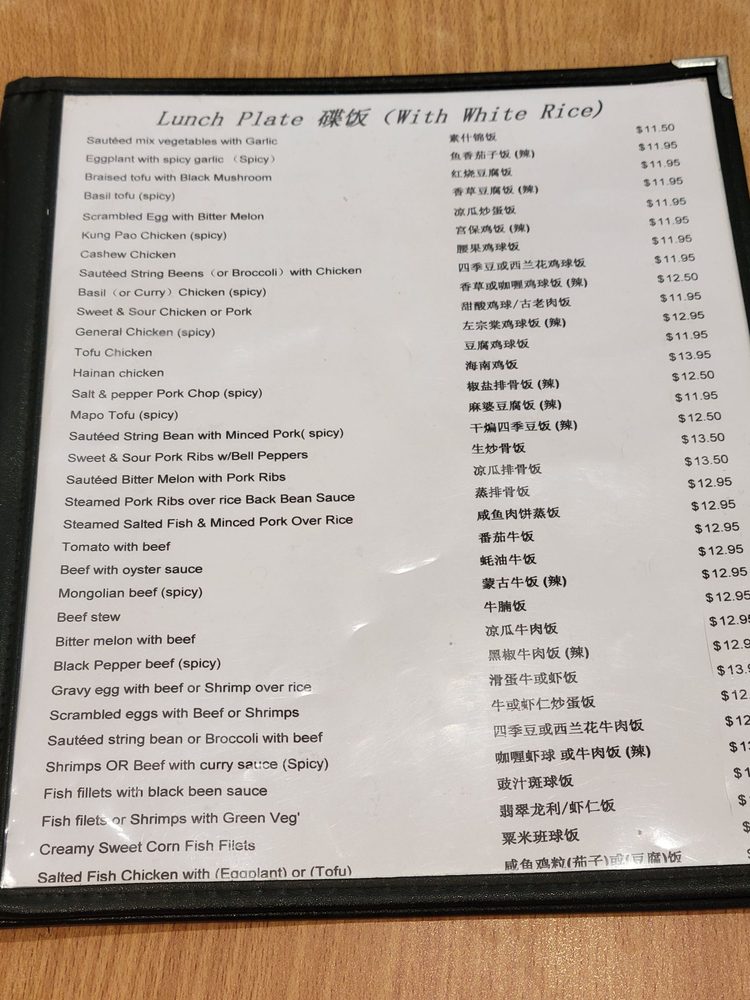 Lunch Plate 碟饭 (With White Rice)
Sautéed mix vegetables with Garlic 素什锦饭 $11.50
Eggplant with spicy garlic （Spicy） 鱼香茄子饭 (辣) $11.95
Braised tofu with Black Mushroom 红烧豆腐饭 $11.95
Basil tofu (spicy) 香草豆腐饭 (辣) $11.95
Scrambled Egg with Bitter Melon 凉瓜炒蛋饭 $11.95
Kung Pao Chicken (spicy) 宫保鸡饭 (辣) $11.95
Cashew Chicken 腰果鸡球饭 $11.95
Sautéed String Beens（or Broccoli）with Chicken 四季豆或西兰花鸡球饭 $11.95
Basil（or Curry）Chicken (spicy) 香草或咖喱鸡球饭 (辣) $12.50
Sweet & Sour Chicken or Pork 甜酸鸡球/古老肉饭 $11.95
General Chicken (spicy) 左宗棠鸡球饭 (辣) $12.95
Tofu Chicken 豆腐鸡球饭 $11.95
Hainan chicken 海南鸡饭 $13.95
Salt & pepper Pork Chop (spicy) 椒盐排骨饭 (辣) $12.50
Mapo Tofu (spicy) 麻婆豆腐饭 (辣) $11.95
Sautéed String Bean with Minced Pork( spicy) 干煸四季豆饭 (辣) $12.50
Sweet & Sour Pork Ribs w/Bell Peppers 生炒骨饭 $13.50
Sautéed Bitter Melon with Pork Ribs 凉瓜排骨饭 $13.50
Steamed Pork Ribs over rice Back Bean Sauce 蒸排骨饭 $12.95
Steamed Salted Fish & Minced Pork Over Rice 咸鱼肉饼蒸饭 $12.95
Tomato with beef 番茄牛饭 $12.95
Beef with oyster sauce 蚝油牛饭 $12.95
Mongolian beef (spicy) 蒙古牛饭 (辣) $12.95
Beef stew 牛腩饭 $12.95
Bitter melon with beef 凉瓜牛肉饭 $12.9
Black Pepper beef (spicy) 黑椒牛肉饭 (辣) $12.9
Gravy egg with beef or Shrimp over rice 滑蛋牛或虾饭 $13.
Scrambled eggs with Beef or Shrimps 牛或虾仁炒蛋饭 $12.
Sautéed string bean or Broccoli with beef 四季豆或西兰花牛肉饭 $12
Shrimps OR Beef with curry sauce (Spicy) 咖喱虾球 或牛肉饭 (辣) $1
Fish fillets with black been sauce 豉汁斑球饭 $1
Fish filets or Shrimps with Green Veg' 翡翠龙利/虾仁饭 $
Creamy Sweet Corn Fish Filets 粟米班球饭 $
Salted Fish Chicken with (Eggplant) or (Tofu) 咸鱼鸡粒(茄子)或(豆腐)饭